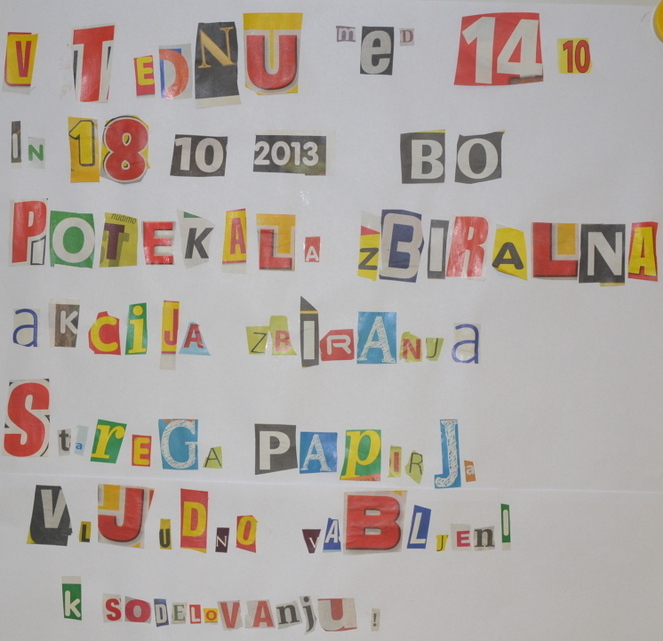 V TEDNU meD 14 10
IN 18 10 2013 BO
POTEKALA ZBIRALNA
aKciJA ZBIRANJa
StarEGA PApIRJa
VLJUDNO VABLJEnI
k SODELOVAnju!